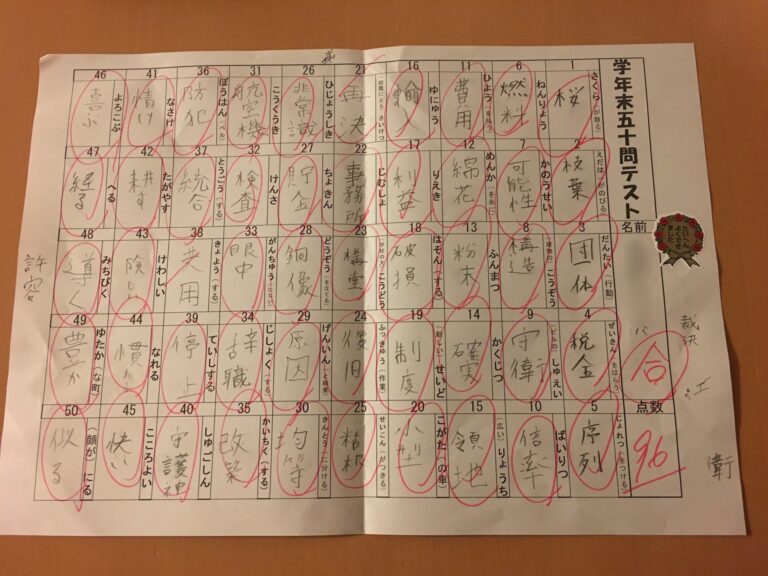 学年末五十問テスト
名前
点数
合
96
1 さくら(が散る) 桜
2 えだは(がのびる) 枝葉
3 だんたい(行動) 団体
4 ぜいきん(をはらう) 税金
5 じょれつ(をつける) 序列
6 ねんりょう 燃料
7 かのうせい 可能性
8 (建物の)こうぞう 構造
9 (ビルの)しゅえい 守衛
10 ばいりつ 倍率
11 ひよう(を払う) 費用
12 めんか(を糸に) 綿花
13 ふんまつ 粉末
14 かくじつ 確実
15 (広い)りょうち 領地
16 ゆにゅう 輸入
17 りえき 利益
18 はそん(する) 破損
19 (新しい)せいど 制度
20 こがた(の車) 小型
21 (投票による)さいけつ 再決
22 じむしょ 事務所
23 (学校の)こうどう 構堂
24 ふっきゅう(作業) 復旧
25 せいこん(がつきる) 精根
26 ひじょうしき 非常識
27 ちょきん 貯金
28 どうぞう(を立てる) 銅像
29 げんいん(と結果) 原因
30 きんとう(に分ける) 均等
31 こうくうき 航空機
32 けんさ 検査
33 がんちゅう(にない) 眼中
34 じしょく(する) 辞職
35 かいちく(する) 改築
36 ぼうはん(ベル) 防犯
37 とうごう(する) 統合
38 きょよう(する) 共用
39 ていしする 停止
40 しゅごしん 守護神
41 なさけ 情け
42 たがやす 耕す
43 けわしい 険しい
44 なれる 慣れる
45 こころよい 快い
46 よろこぶ 喜ぶ
47 へる 経る
48 みちびく 導く
49 ゆたか(な町) 豊か
50 (顔が)にる 似る
許容
裁決
衛